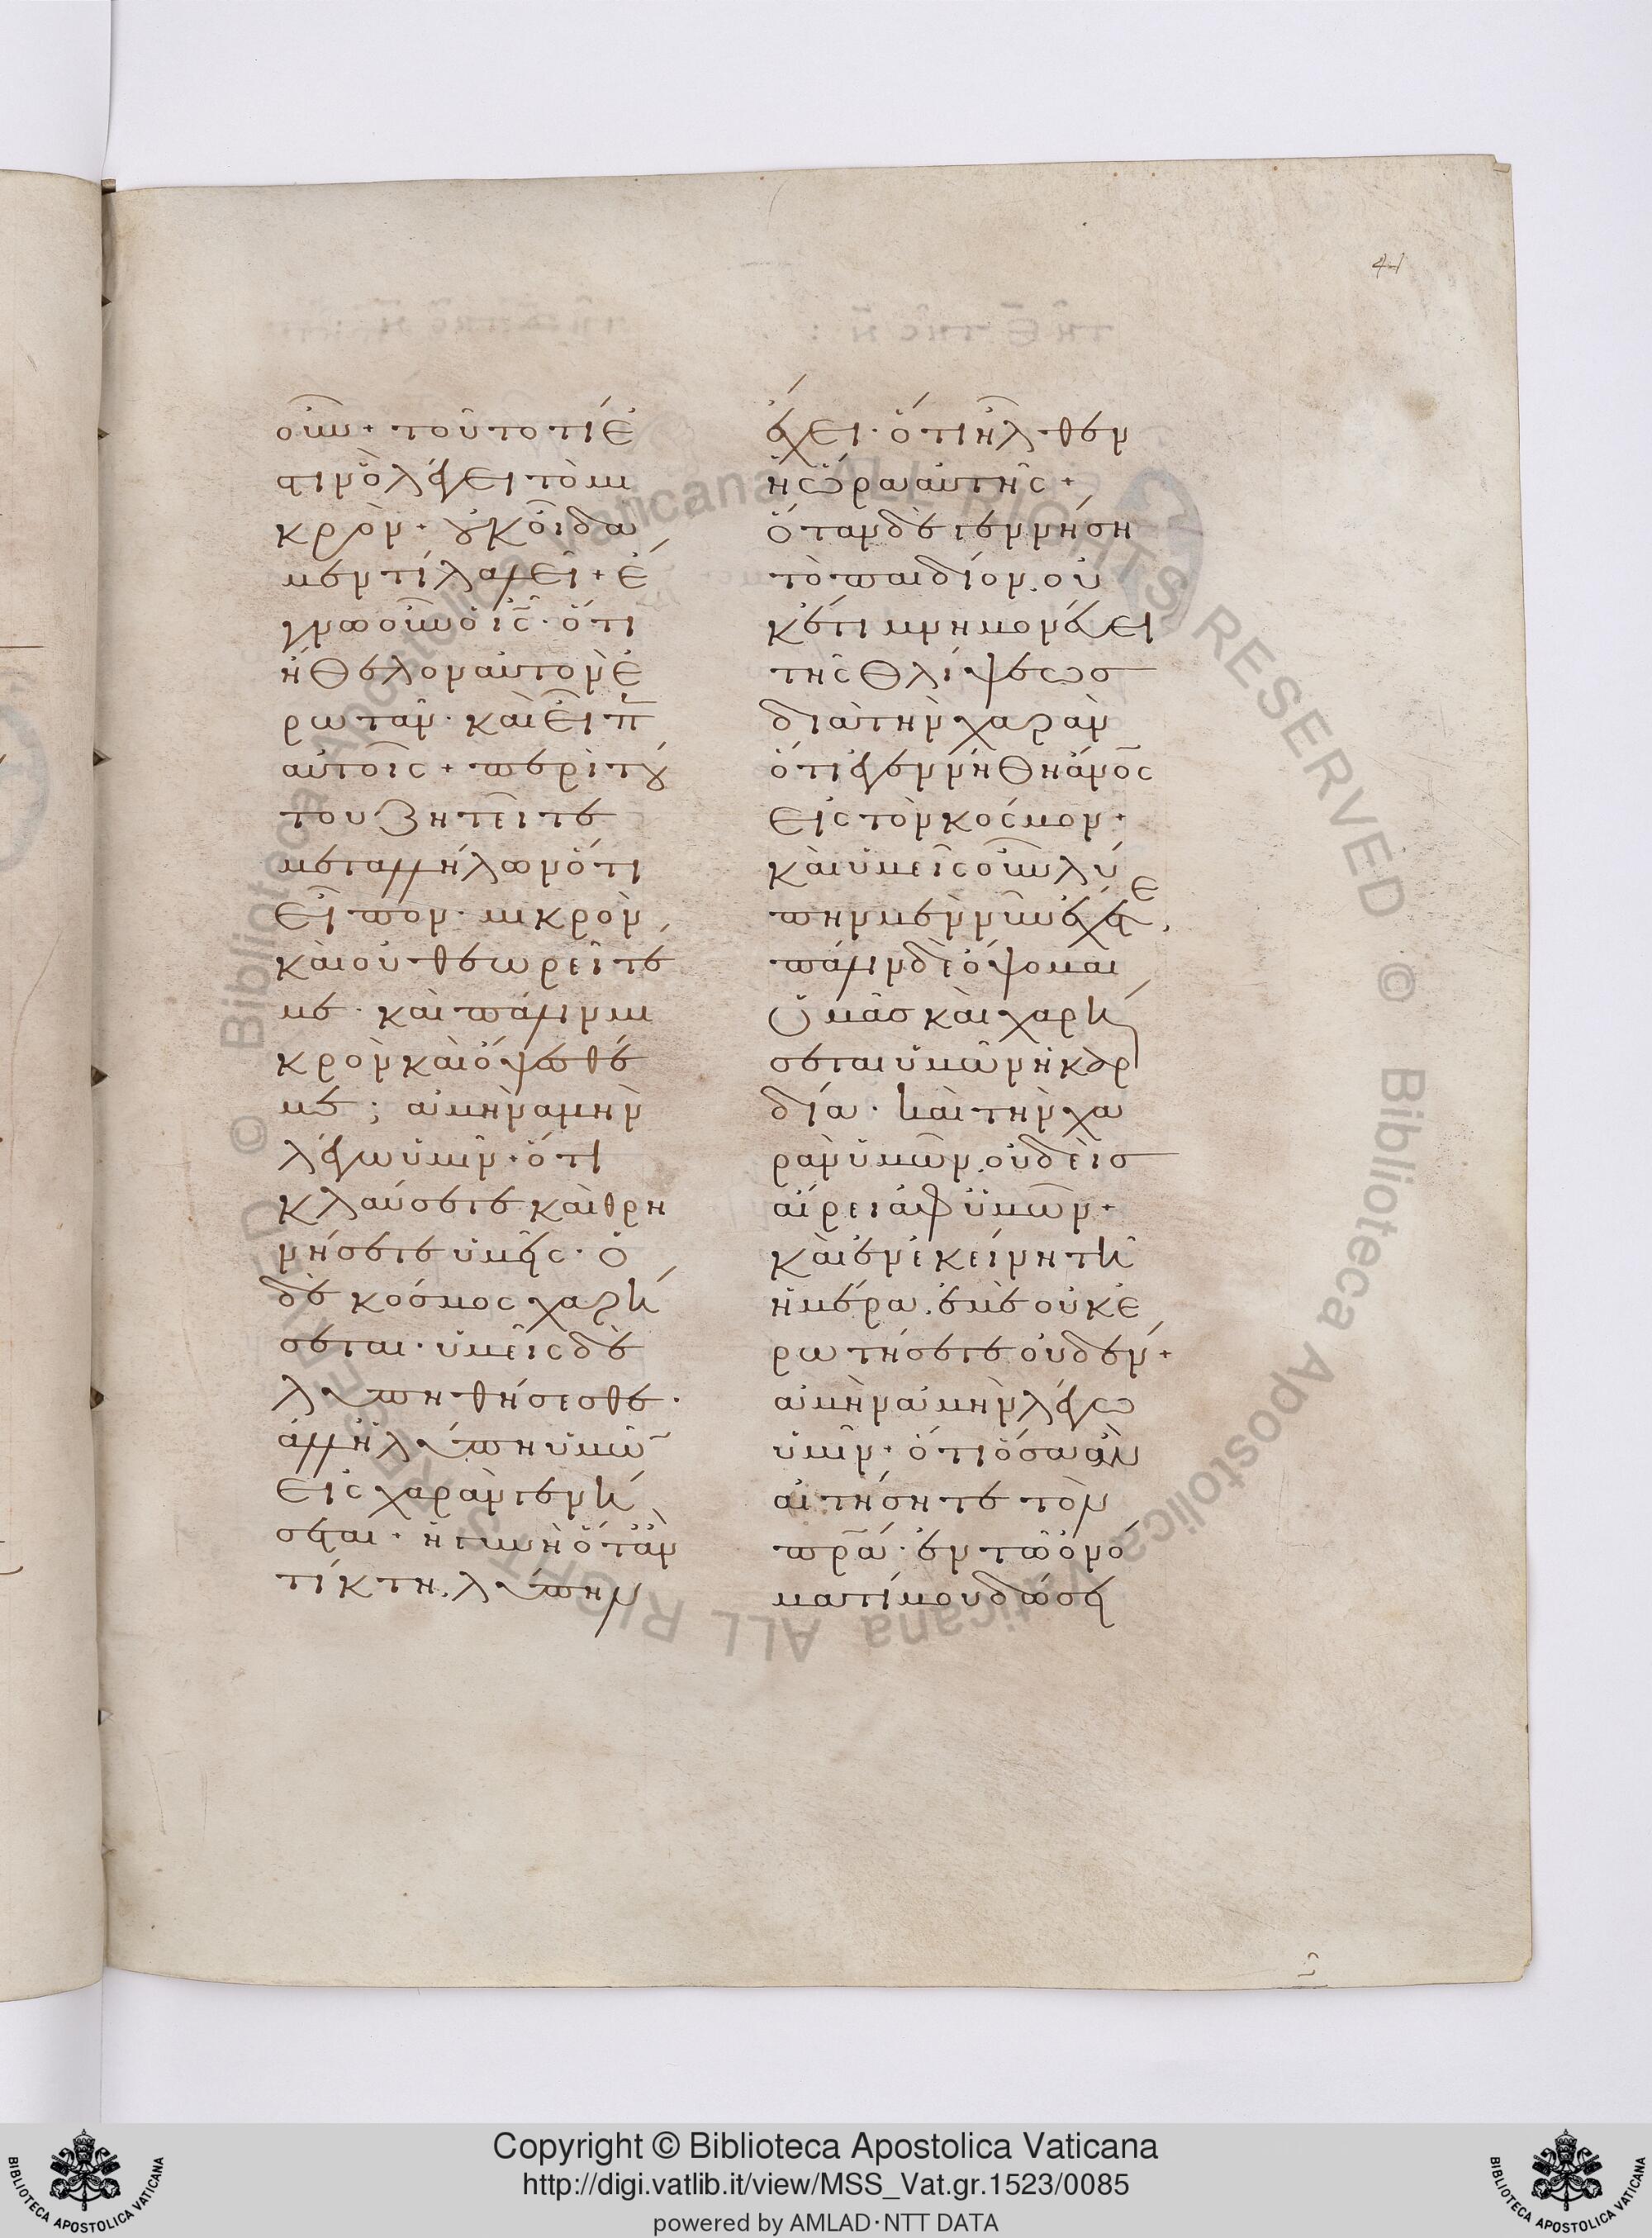 41
οὖν + τοῦτο τί ἐ
στιν ὃ λέγει τὸ μι
κρόν · οὐκ οἴδα
μεν τί λαλεῖ + ἔ
γνω οὖν ὁ ις̅ · ὅτι
ἤθελον αὐτὸν ἐ
ρωτᾶν · καὶ εἶπεν
αὐτοῖς + περὶ τού
του ζητεῖτε
μετ ἀλλήλων ὅτι
εἶπον · μικρὸν
καὶ οὐ θεωρεῖτέ
με · καὶ πάλιν μι
κρὸν καὶ ὄψεσθέ
με ; ἀμὴν ἀμὴν
λέγω ὑμῖν · ὅτι
κλαύσετε καὶ θρη
νήσετε ὑμεῖς · ὁ
δὲ κόσμος χαρή
σεται · ὑμεῖς δὲ
λυπηθήσεσθε ·
ἀλλ ἡ λύπη ὑμῶν
εἰς χαρὰν γενή
σεται · ἡ γυνὴ ὅταν
τίκτη, λύπην
ἔχει · ὅτι ἦλθεν
ἡ ὥρα αὐτῆς +
ὅταν δὲ γεννήση
τὸ παιδίον, οὐ
κέτι μνημονεύει
τῆς θλίψεως
διὰ τὴν χαρὰν
ὅτι ἐγεννήθη ἄνος̅
εἰς τὸν κόσμον +
καὶ ὑμεῖς οὖν λύ
πην μὲν νῦν ἔχετε,
πάλιν δὲ ὄψομαι
ὑμᾶς καὶ χαρή
σεται ὑμῶν ἡ καρ
δία · καὶ τὴν χα
ρὰν ὑμῶν, οὐδεὶς
αἴρει ἀφ ὑμῶν +
καὶ ἐν ἐκείνη τῆ
ἡμέρα, ἐμὲ οὐκ ἐ
ρωτήσετε οὐδέν +
ἀμὴν ἀμὴν λέγω
ὑμῖν · ὅτι ὅσα ἂν
αἰτήσητε τὸν
πρα̅ · ἐν τῶ ὀνό
ματί μου δώσει
Copyright © Biblioteca Apostolica Vaticana
http://digi.vatlib.it/view/MSS_Vat.gr.1523/0085
powered by AMLAD·NTT DATA
BIBLIOTECA APOSTOLICA VATICANA
BIBLIOTECA APOSTOLICA VATICANA
© Biblioteca Apostolica Vaticana ALL RIGHTS RESERVED
© Biblioteca Apostolica Vaticana ALL RIGHTS RESERVED